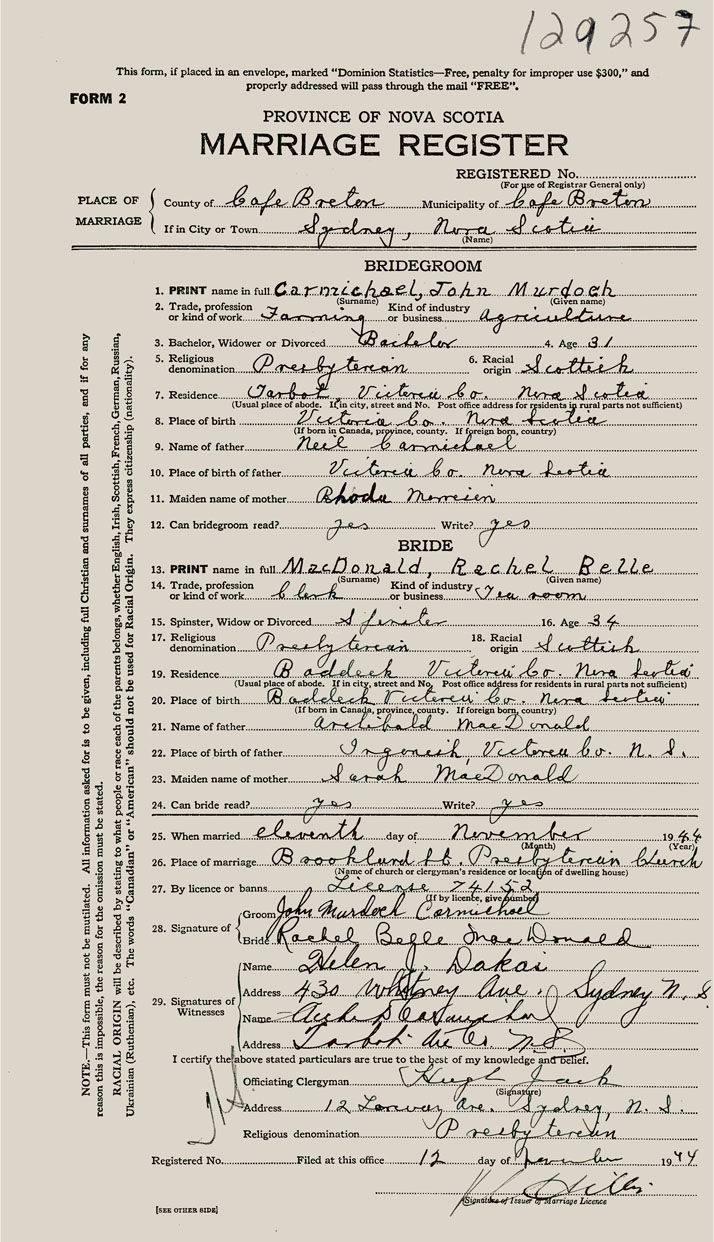 129257
This form, if placed in an envelope, marked "Dominion Statistics—Free, penalty for improper use $300," and
properly addressed will pass through the mail "FREE".
FORM 2
PROVINCE OF NOVA SCOTIA
MARRIAGE REGISTER
REGISTERED No.
(For use of Registrar General only)
PLACE OF MARRIAGE
County of Cape Breton Municipality of Cape Breton
If in City or Town Sydney, Nova Scotia
(Name)
BRIDEGROOM
1. PRINT name in full Carmichael, John Murdoch
(Surname) (Given name)
2. Trade, profession or kind of work Farming Kind of industry or business Agriculture
3. Bachelor, Widower or Divorced Bachelor 4. Age 31
5. Religious denomination Presbyterian 6. Racial origin Scottish
7. Residence Tarbot, Victoria Co. Nova Scotia
(Usual place of abode. If in city, street and No. Post office address for residents in rural parts not sufficient)
8. Place of birth Victoria Co. Nova Scotia
(If born in Canada, province, county. If foreign born, country)
9. Name of father Neil Carmichael
10. Place of birth of father Victoria Co. Nova Scotia
11. Maiden name of mother Rhoda Morrison
12. Can bridegroom read? yes Write? yes
BRIDE
13. PRINT name in full MacDonald, Rachel Belle
(Surname) (Given name)
14. Trade, profession or kind of work Clerk Kind of industry or business Tea room
15. Spinster, Widow or Divorced Spinster 16. Age 34
17. Religious denomination Presbyterian 18. Racial origin Scottish
19. Residence Baddeck Victoria Co. Nova Scotia
(Usual place of abode. If in city, street and No. Post office address for residents in rural parts not sufficient)
20. Place of birth Baddeck Victoria Co. Nova Scotia
(If born in Canada, province, county. If foreign born, country)
21. Name of father Archibald MacDonald
22. Place of birth of father Ingonish, Victoria Co. N. S.
23. Maiden name of mother Sarah MacDonald
24. Can bride read? yes Write? yes
25. When married eleventh day of November 1944
(Month) (Year)
26. Place of marriage Brookland St. Presbyterian Church
(Name of church or clergyman's residence or location of dwelling house)
27. By licence or banns License 74152
(If by licence, give number)
28. Signature of
Groom John Murdoch Carmichael
Bride Rachel Belle MacDonald
29. Signatures of Witnesses
Name Helen J. Dakai
Address 430 Whitney Ave. Sydney N. S.
Name
Address Tarbot Vic Co. N.S.
I certify the above stated particulars are true to the best of my knowledge and belief.
Officiating Clergyman Hugh Jack
(Signature)
Address 12 Ave. Sydney, N. S.
Religious denomination Presbyterian
Registered No. Filed at this office 12 day of November 1944
Signature of Issuer of Marriage Licence
[SEE OTHER SIDE]
NOTE.—This form must not be mutilated. All information asked for is to be given, including full Christian and surnames of all parties, and if for any
reason this is impossible, the reason for the omission must be stated.
RACIAL ORIGIN will be described by stating to what people or race each of the parents belongs, whether English, Irish, Scottish, French, German, Russian,
Ukrainian (Ruthenian), etc. The words "Canadian" or "American" should not be used for Racial Origin. They express citizenship (nationality).